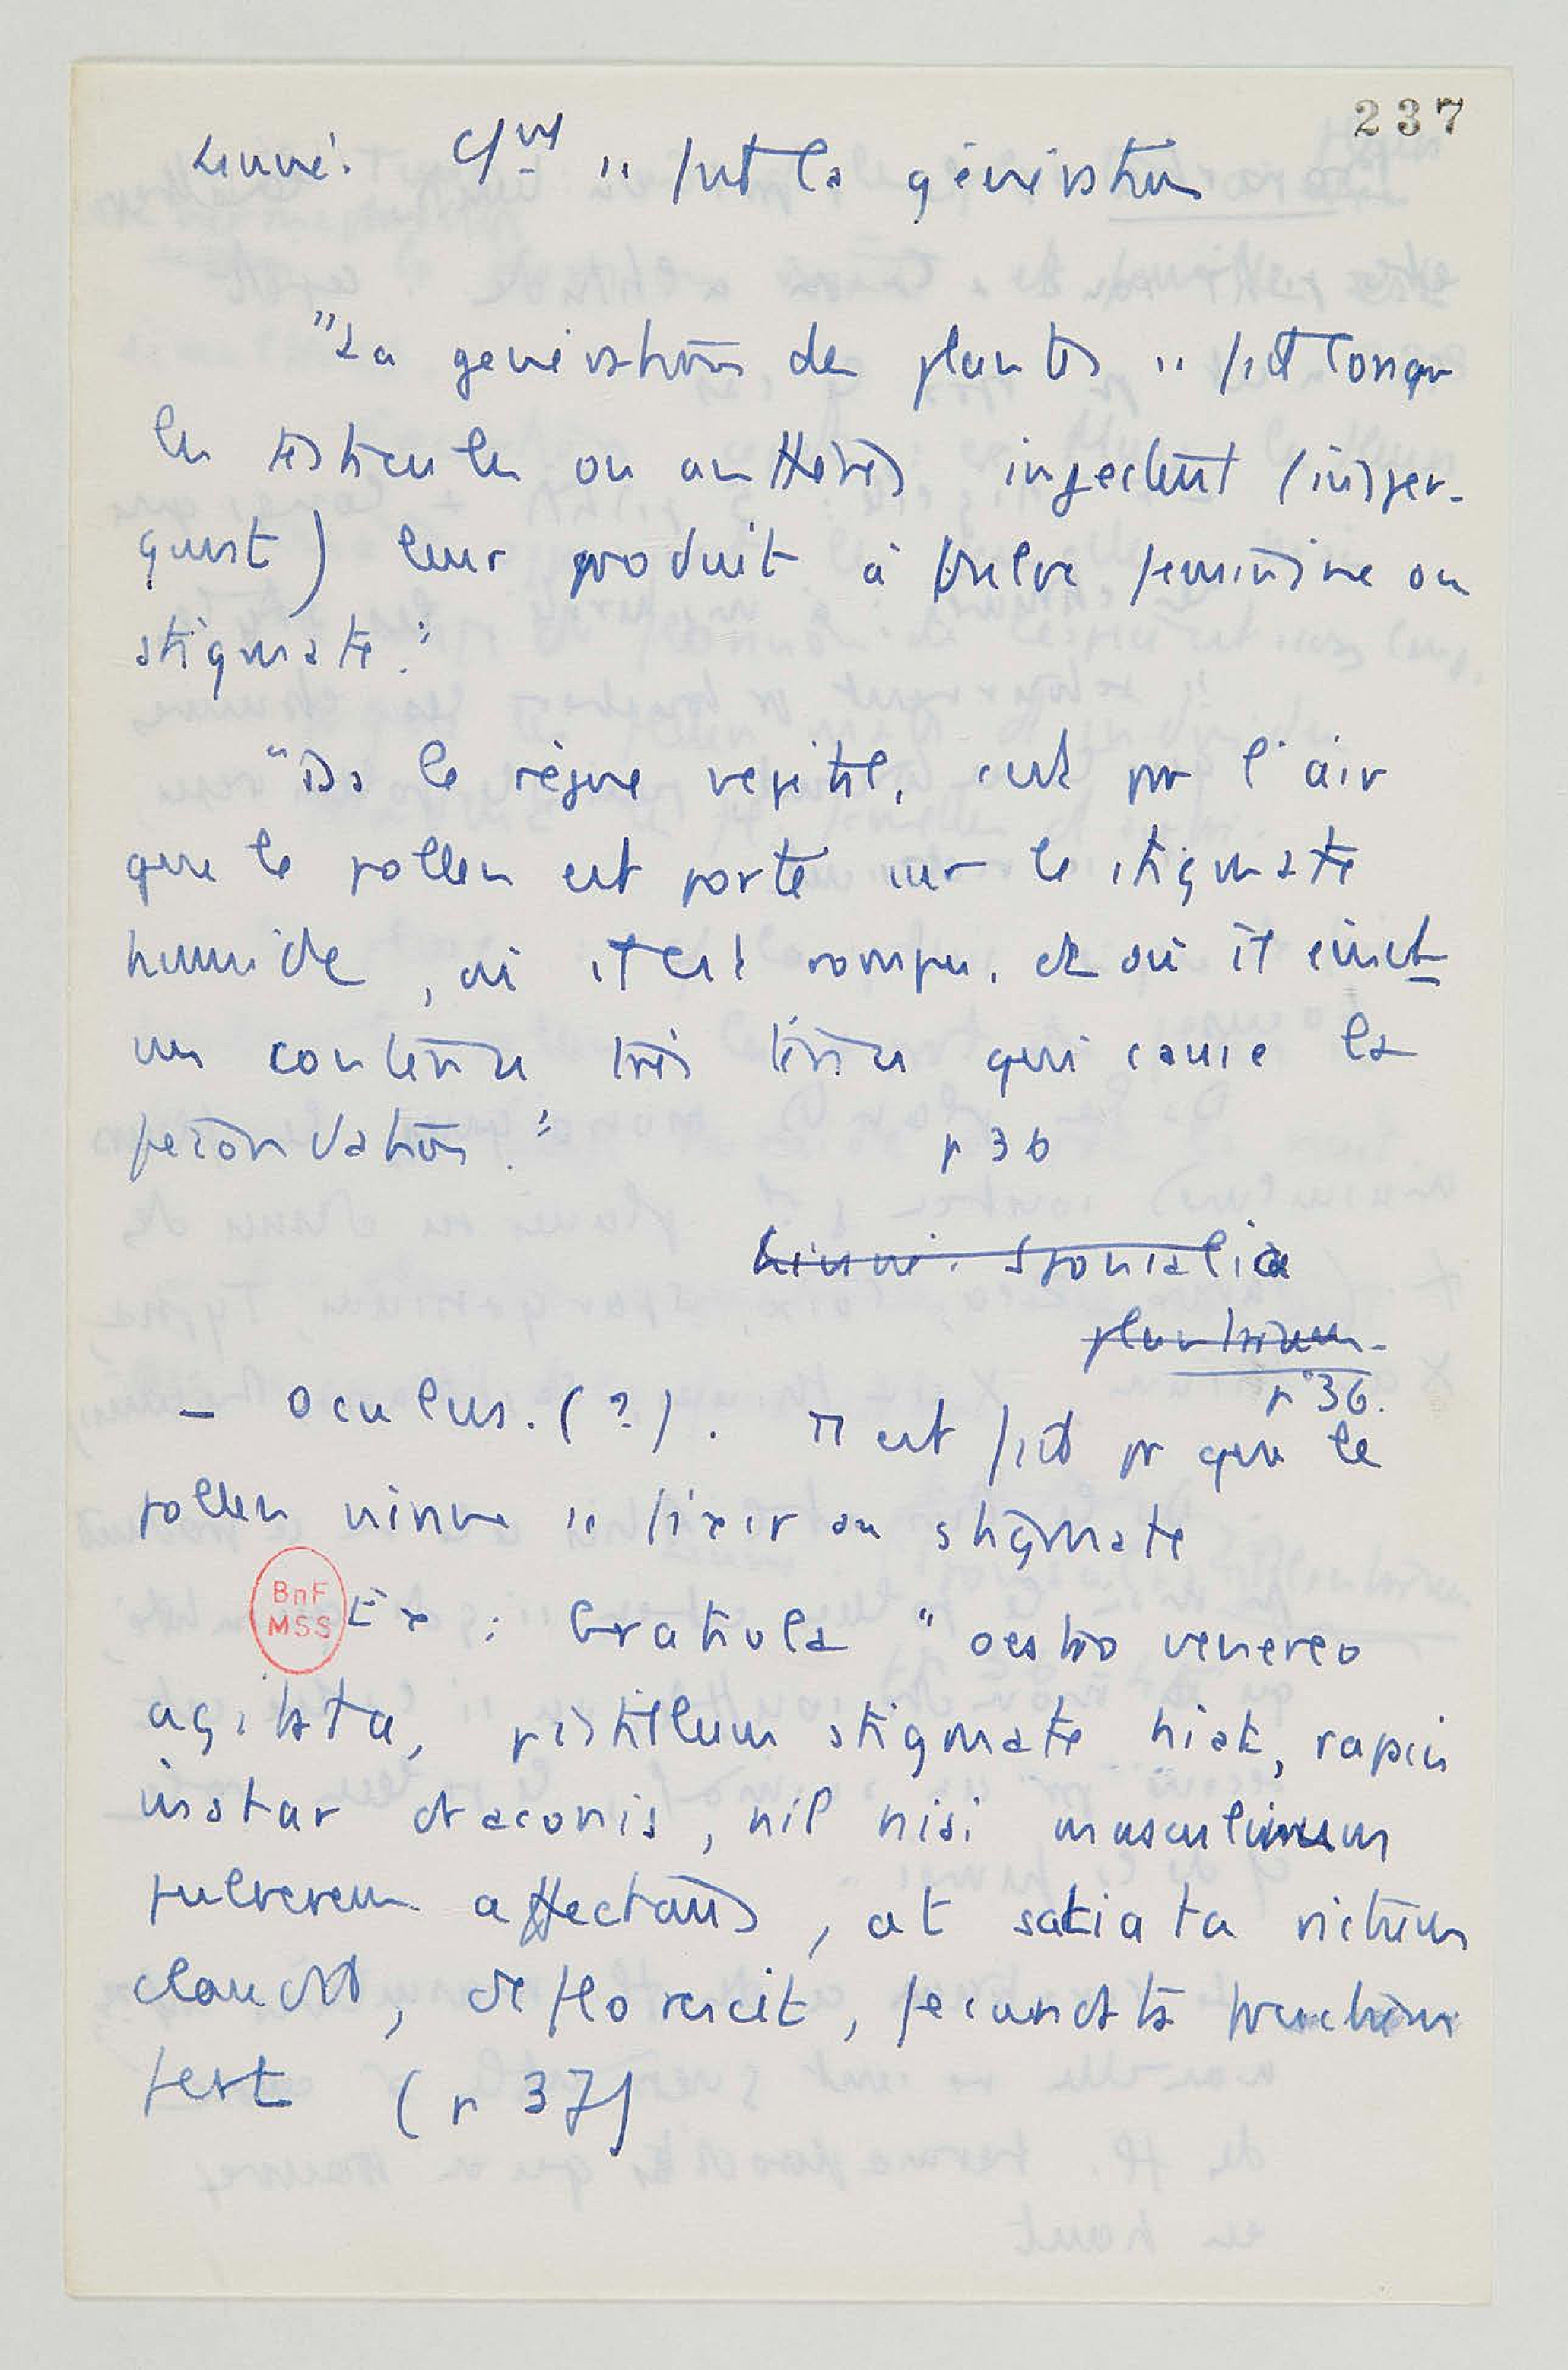 237
Linné. Cmt se fait la génération
"La génération des plantes se fait lorsque
les testicules ou anthères injectent (insper-
gunt) leur produit à vulve féminine ou
stigmate."
"Ds le règne végétal, c'est par l'air
que le pollen est porté sur le stigmate
humide, où il est rompu, et où il émet
un contenu très ténu qui cause la
fécondation." p 36
Linné. Sponsalia
plantarum
p 36.
- Oculus. (?). Il est fait pr que le
pollen vienne se fixer au stigmate
BnF
MSS
Ex : Gratiola "oestro venereo
agitata, pistillum stigmate hiat, rapacis
instar draconis, nil nisi masculinum
pulverem affectans, at satiata rictum
claudit, deflorescit, fecundata fructum
fert (p 37)